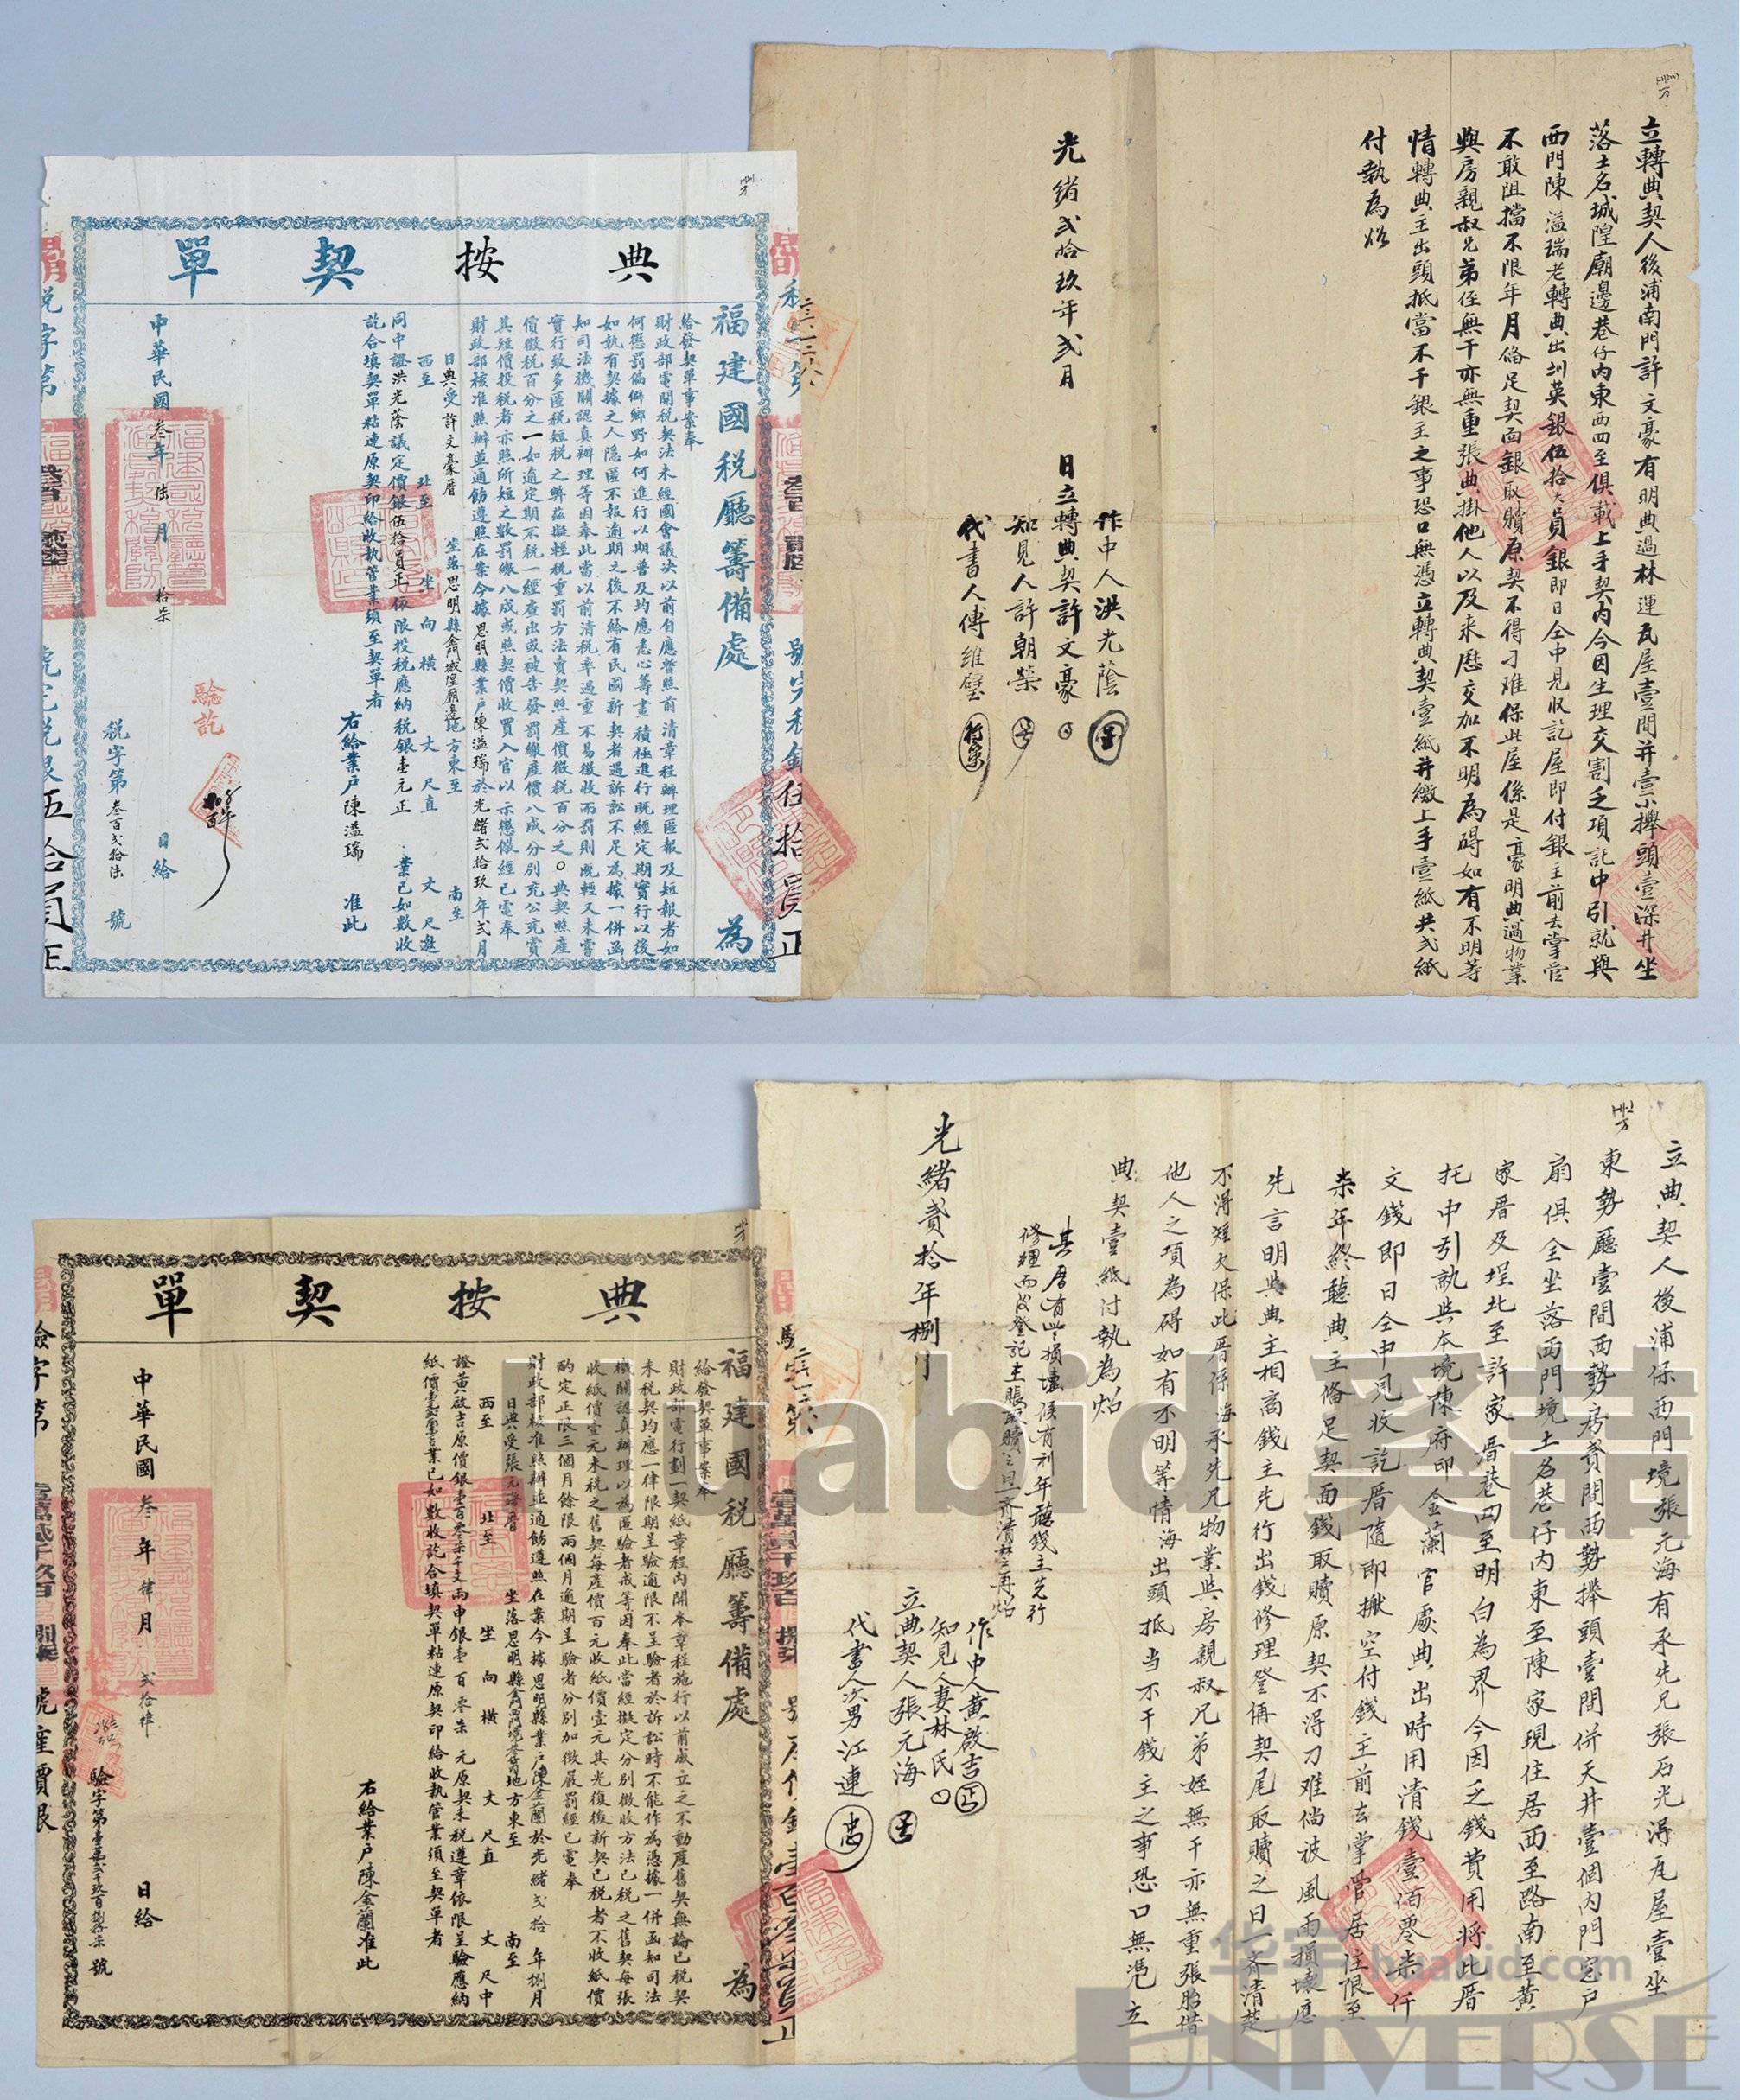 立轉典契人後浦南門許文豪有明典過林運瓦屋壹間并壹小攑頭壹深井坐
落土名城隍廟邊巷仔內東西四至俱載上手契內今因生理交割乏項託中引就與
西門陳溢瑞老轉典出圳英銀伍拾大員銀即日仝中見收訖屋即付銀主前去掌管
不敢阻擋不限年月俻足契面銀取贖原契不得刁难保此屋係是豪明典過物業
與房親叔兄弟侄無干亦無重張典掛他人以及来歷交加不明為碍如有不明等
情轉典主出頭抵當不干銀主之事恐口無憑立轉典契壹紙并繳上手壹紙共弍紙
付執為炤
作中人洪光蔭
光緒弍拾玖年弍月 日立轉典契許文豪
知見人許朝榮
代書人傅維璧
典按契單
福建國稅廳籌備處 為
給發契單事案奉
財政部電開稅契法未經國會議决以前自應暫照前清章程辦理匿報及短報者如
何懲罰偏僻鄉野如何進行以期普及均應悉心籌畫積極進行旣經定期實行以後
如執有契據之人隱匿不報逾期之後不給有民國新契者遇訴訟不足為據一併函
知司法機關認真辦理等因奉此當以前清稅率過重不易徵收而罰則旣輕又未嘗
實行致多匿稅短稅之弊茲擬輕稅重罰方法賣契照產價徵稅百分之 典契照產
價徵稅百分之一如逾定期不稅一經查出或被告發罰繳產價八成分別充公充賞
其短價投稅者亦照所短之數罰繳八成或照契價收買入官以示懲儆經已電奉
財政部核准照辦並通飭遵照在案今據思明縣業戶陳溢瑞於光緒弍拾玖年弍月
日典受許文豪厝 坐落思明縣金門城隍廟邊地方東至 南至
西至 北至 坐 向 橫 丈 尺直 丈 尺逛
同中證洪光蔭議定價銀伍拾員正依限投稅應納稅銀壹元正 業已如數收
訖合填契單粘連原契印給收執管業須至契單者
右給業户陳溢瑞 准此
驗訖
中華民國叁年陸月拾柒日給
稅字第叁百弍拾陸號
立典契人後浦保西門境張元海有承先兄張石光淂瓦屋壹坐
東勢廳壹間西勢房貳間西勢攑頭壹間併天井壹個內門窓戶
扇俱全坐落西門境土名巷仔內東至陳家現住居西至路南至黃
家厝及埕北至許家厝巷四至明白為界今因乏錢費用將此厝
托中引就與本境陳府印金蘭官處典出時用清錢壹佰零柒仟
文錢即日仝中見收訖厝隨即搬空付錢主前去掌管居住限至
柒年終聽典主俻足契面錢取贖原契不得刁难倘被風雨損壞應
先言明與典主相商錢主先行出錢修理登俻契尾取贖之日一齐清楚
不淂短欠保此厝係海承先兄物業與房親叔兄弟姪無干亦無重張胎借
他人之項為碍如有不明等情海出頭抵当不干錢主之事恐口無憑立
典契壹紙付執為炤
作中人黄啟吉
知見人妻林氏
光緒貳拾年捌月 立典契人張元海
代書人次男江連
典按契單
福建國稅廳籌備處 為
給發契單事案奉
財政部電行劃一契紙章程內開本章程施行以前成立之不動產舊契無論已稅契
未稅契均應一律限期呈驗逾限不呈驗者於訴訟時不能作為憑據一併函知司法
機關認真辦理以為匿驗者戒等因奉此當經擬定分別徵收方法已稅之舊契每張
收紙價壹元未稅之舊契每產價百元收紙價壹元其光復後新契已稅者不收紙價
酌定正限三個月餘限兩個月逾期呈驗者分別加徵嚴罰經已電奉
財政部核准照辦並通飭遵照在案今據思明縣業戶陳金蘭於光緒弍拾年捌月
日典受張元海厝 坐落思明縣金門 地方東至 南至
西至 北至 坐 向 橫 丈 尺直 丈 尺中
證黃啟吉原價銀壹百零柒千文兩申銀壹百零柒元原契未稅遵章依限呈驗應納
紙價 業已如數收訖合填契單粘連原契印給收執管業須至契單者
右給業户陳金蘭准此
中華民國叁年肆月弍拾肆日給
驗字第壹萬弍千玖百捌拾柒號
Huabid 华喆
华宇 huabid.com
UNIVERSE